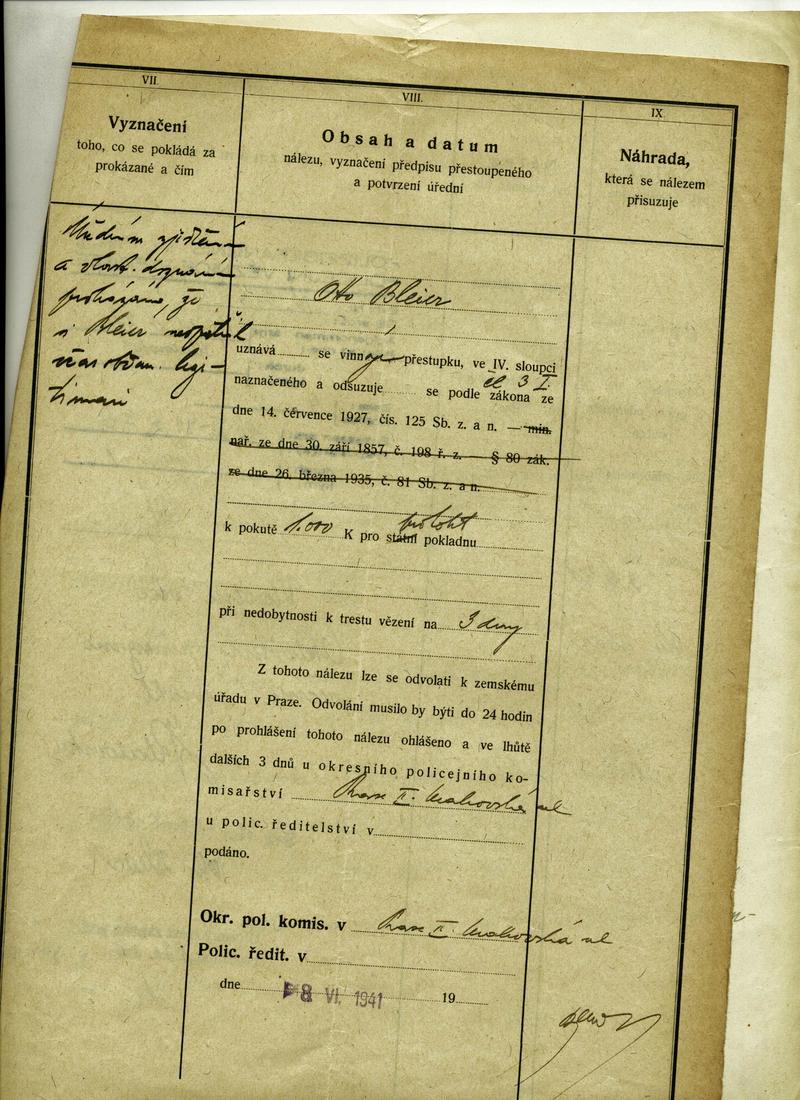 VII.
Vyznačení
toho, co se pokládá za
prokázané a čím
Bleier
VIII.
Obsah a datum
nálezu, vyznačení předpisu přestoupeného
a potvrzení úřední
Otto Bleier
uznává se vinným přestupku, ve IV. sloupci
čl 3 I.
naznačeného a odsuzuje se podle zákona ze
dne 14. července 1927, čís. 125 Sb. z. a n. — min.
nař. ze dne 30. září 1857, č. 198 ř. z. — § 80 zák.
ze dne 26. března 1935, č. 81 Sb. z. a n.
k pokutě 1.000 K pro státní pokladnu
při nedobytnosti k trestu vězení na 3 dny
Z tohoto nálezu lze se odvolati k zemskému
úřadu v Praze. Odvolání musilo by býti do 24 hodin
po prohlášení tohoto nálezu ohlášeno a ve lhůtě
dalších 3 dnů u okresního policejního ko-
misařství Praze II. Krakovská ul
u polic. ředitelství v
podáno.
Okr. pol. komis. v Praze II. Krakovská ul
Polic. ředit. v
dne 8 VI. 1941 19
IX
Náhrada,
která se nálezem
přisuzuje